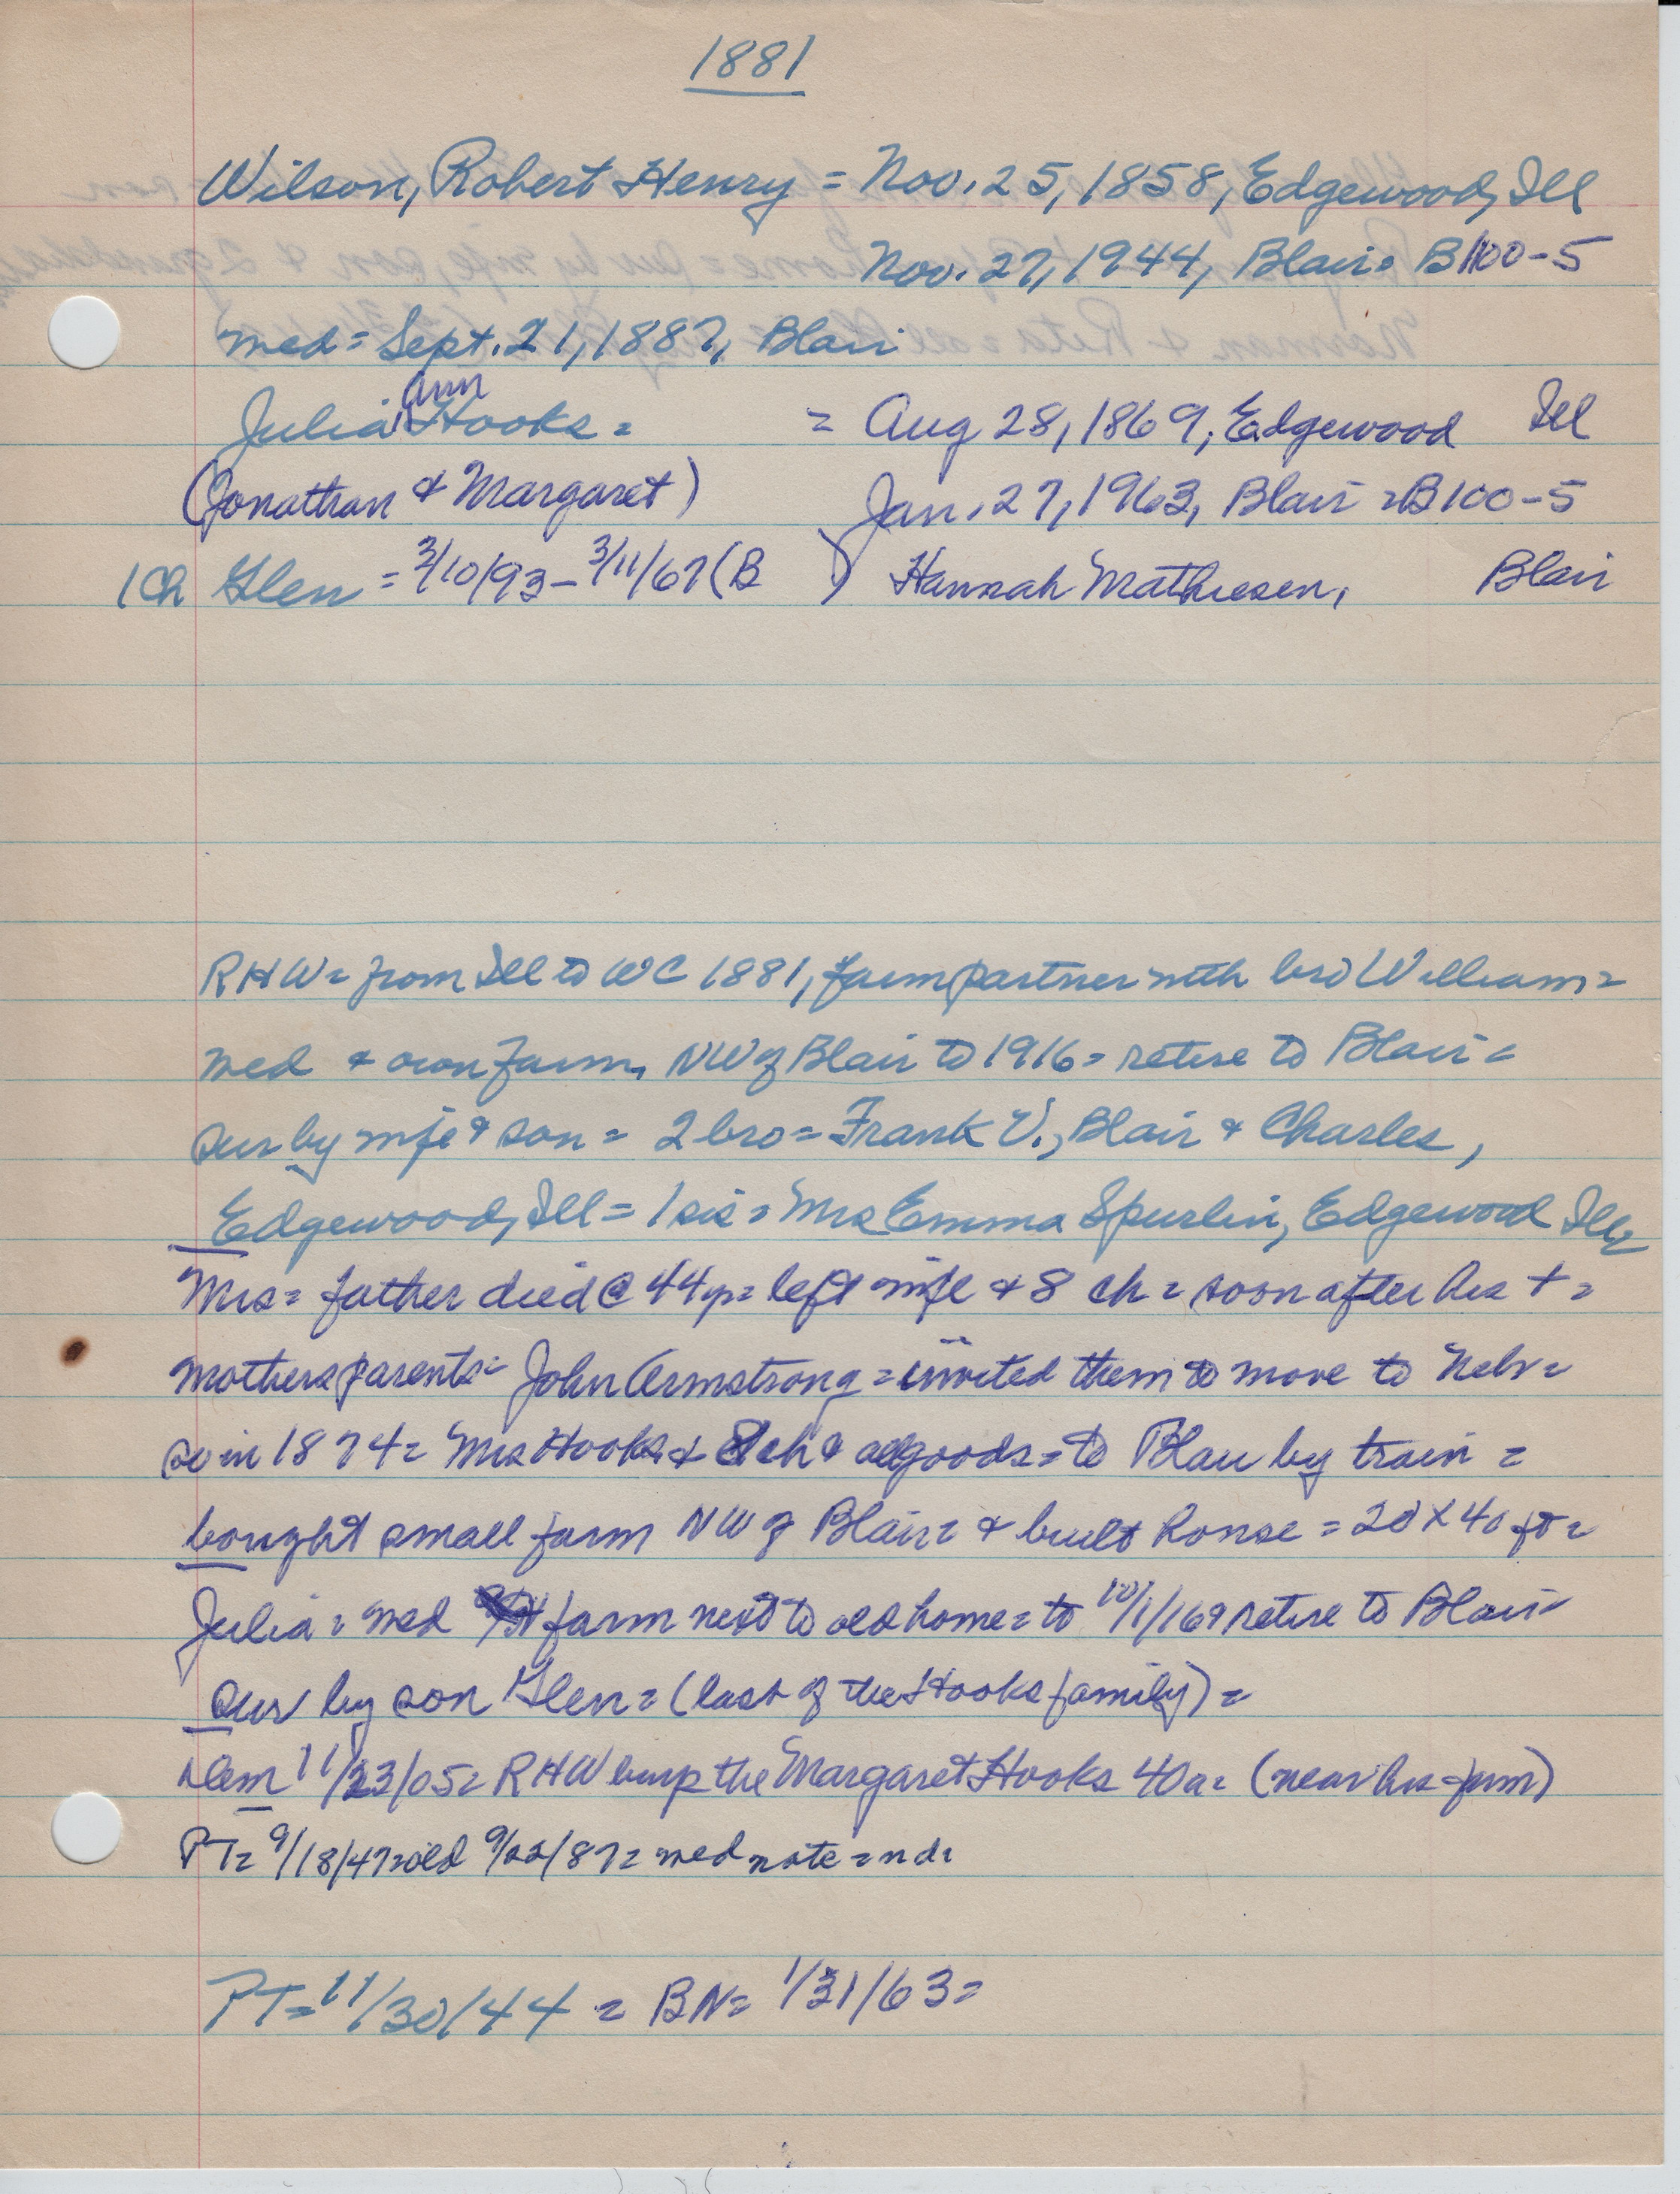 1881
Wilson, Robert Henry = Nov. 25, 1858, Edgewood, Ill
Nov. 27, 1944, Blair = B 100-5
med = Sept. 21, 1887, Blair
Ann
Julia Hooks = = Aug 28, 1869, Edgewood Ill
(Jonathan & Margaret) Jan. 27, 1963, Blair = B 100-5
1 Ch Glen = 3/10/93 – 3/11/67 (B ) Hannah Mathiesen, Blair
RHW = from Ill to WC 1881, farm partner with bro William =
med & own farm, NW of Blair to 1916 = retire to Blair =
sur by wife & son = 2 bro = Frank V., Blair & Charles,
Edgewood, Ill = 1 sis = Mrs Emma Spurlin, Edgewood Ill
Mrs = father died @ 44 y = left wife & 8 ch = soon after his + =
mothers parents = John Armstrong = invited them to move to Nebr =
so in 1874 = Mrs Hooks & 8 ch & all goods = to Blair by train =
bought small farm NW of Blair = & built house = 20 x 40 ft =
Julia = med farm next to old home = to 10/1/16 retire to Blair =
sur by son Glen = (last of the Hooks family) =
Dem 11/23/05 = RHW buys the Margaret Hooks 40a = (near his farm)
PT = 9/18/47 = old 9/22/87 = med note = nd =
PT = 11/30/44 = BN = 1/31/63 =